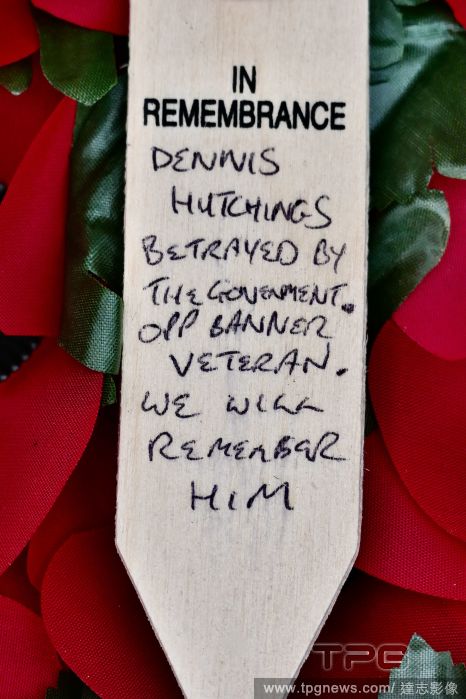 IN
REMEMBRANCE
DENNIS
HUTCHINGS
BETRAYED BY
THE GOVENMENT.
OPP BANNER
VETERAN.
WE WILL
REMEMBER
HIM
TPG
www.tpgnews.com/ 達志影像